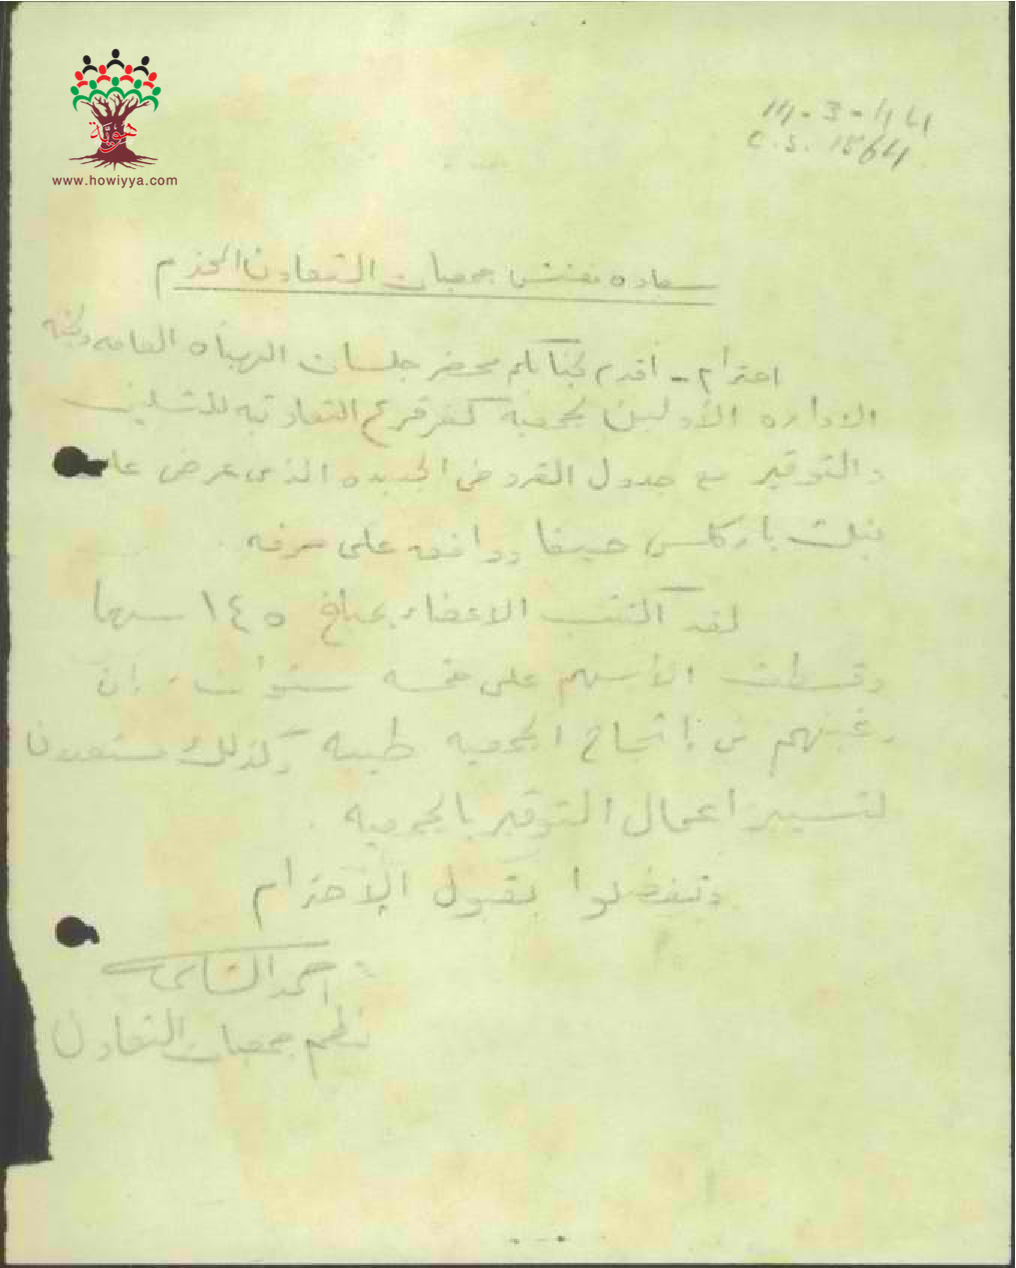 هوية
www.howiyya.com
14-3-44
C.S. 1864
سعادة مفتش جمعيات التعاون المحترم
احترام - أقدم لجنابكم محضر جلسات الهيأه العامه ولجنة
الاداره الأولين لجمعية كفر قرع التعاونيه للتسليف
والتوفير مع جدول القروض الجديده الذى عرض على
بنك باركلس حيفا ووافق على صرفه
لقد اكتتب الاعضاء بمبلغ ١٤٥ سهما
وقسطت الأسهم على خمسه سنوات، إن
رغبتهم في إنجاح الجمعيه طيبه وكذلك مستعدون
لتسيير اعمال التوفير بالجمعيه .
وتفضلوا بقبول الإحترام
احمد
منظم جمعيات التعاون